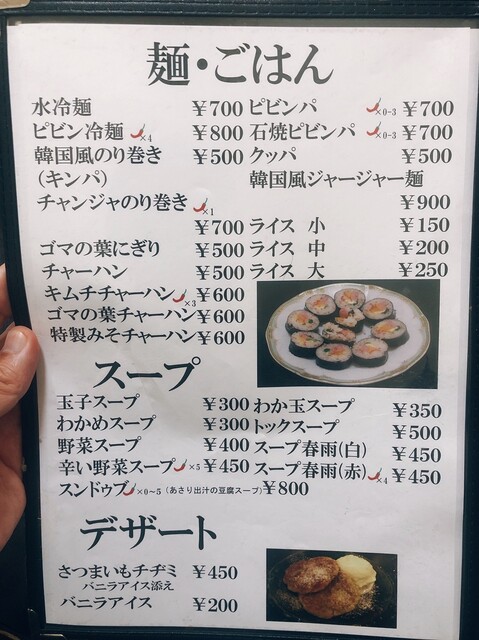 麺・ごはん
水冷麺 ￥700
ピビン冷麺 ×4 ￥800
韓国風のり巻き ￥500
（キンパ）
チャンジャのり巻き ×1
￥700
ゴマの葉にぎり ￥500
チャーハン ￥500
キムチチャーハン ×3 ￥600
ゴマの葉チャーハン ￥600
特製みそチャーハン ￥600
ピビンパ ×0-3 ￥700
石焼ピビンパ ×0-3 ￥700
クッパ ￥500
韓国風ジャージャー麺
￥900
ライス 小 ￥150
ライス 中 ￥200
ライス 大 ￥250
スープ
玉子スープ ￥300
わかめスープ ￥300
野菜スープ ￥400
辛い野菜スープ ×5 ￥450
スンドゥブ ×0～5 （あさり出汁の豆腐スープ） ￥800
わか玉スープ ￥350
トックスープ ￥500
スープ春雨(白) ￥450
スープ春雨(赤) ×4 ￥450
デザート
さつまいもチヂミ ￥450
バニラアイス添え
バニラアイス ￥200